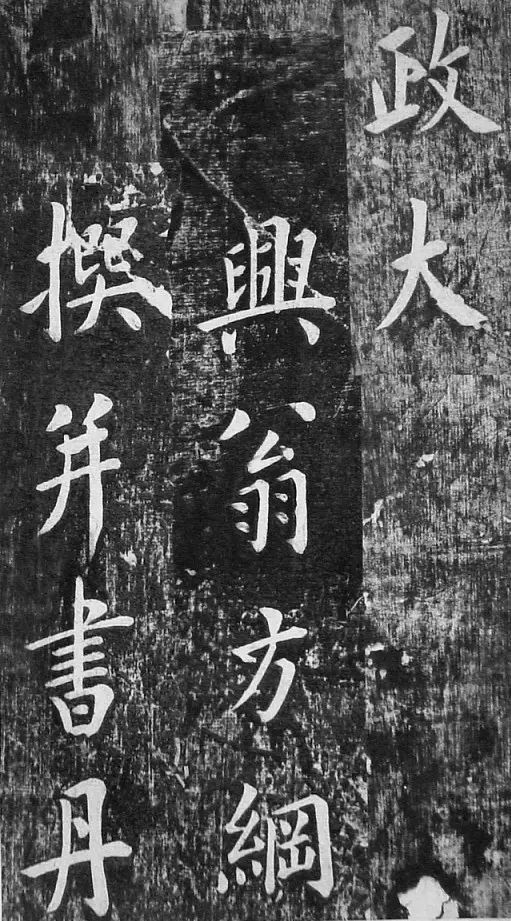 政大
興翁方綱
撰并書丹